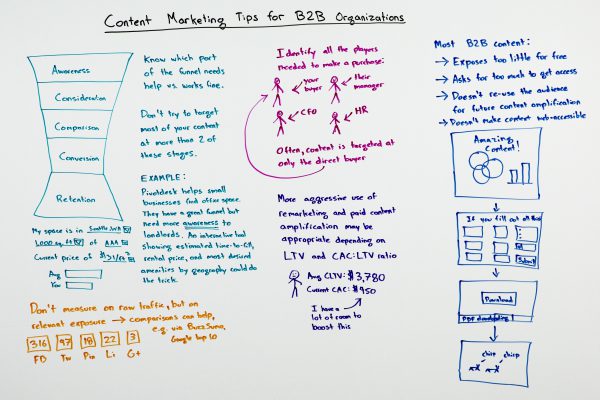 Content Marketing Tips for B2B Organizations
Awareness
Consideration
Comparison
Conversion
Retention
Know which part
of the funnel needs
help vs. works fine.
Don't try to target
most of your content
at more than 2 of
these stages.
EXAMPLE:
Pivotdesk helps small
businesses find office space.
They have a great funnel but
need more awareness to
landlords. An interactive tool
showing estimated time-to-fill,
rental price, and most desired
amenities by geography could do
the trick.
My space is in
1,000 sq. ft. of AAA
Current price of $31/ft²
Avg
You
Don't measure on raw traffic, but on
relevant exposure → comparisons can help,
e.g. via BuzzSumo,
Google top 10
316 97 18 22 3
FB Tw Pin Li G+
Identify all the players
needed to make a purchase:
your buyer
their manager
CFO
HR
Often, content is targeted at
only the direct buyer
More aggressive use of
remarketing and paid content
amplification may be
appropriate depending on
LTV and CAC:LTV ratio
Avg CLTV: $3,780
Current CAC: $950
I have a
lot of room to
boost this
Most B2B content:
→ Exposes too little for free
→ Asks for too much to get access
→ Doesn't re-use the audience
for future content amplification
→ Doesn't make content web-accessible
Amazing
Content!
If you fill out all this
Submit
Download
PDF downloading
chirp chirp